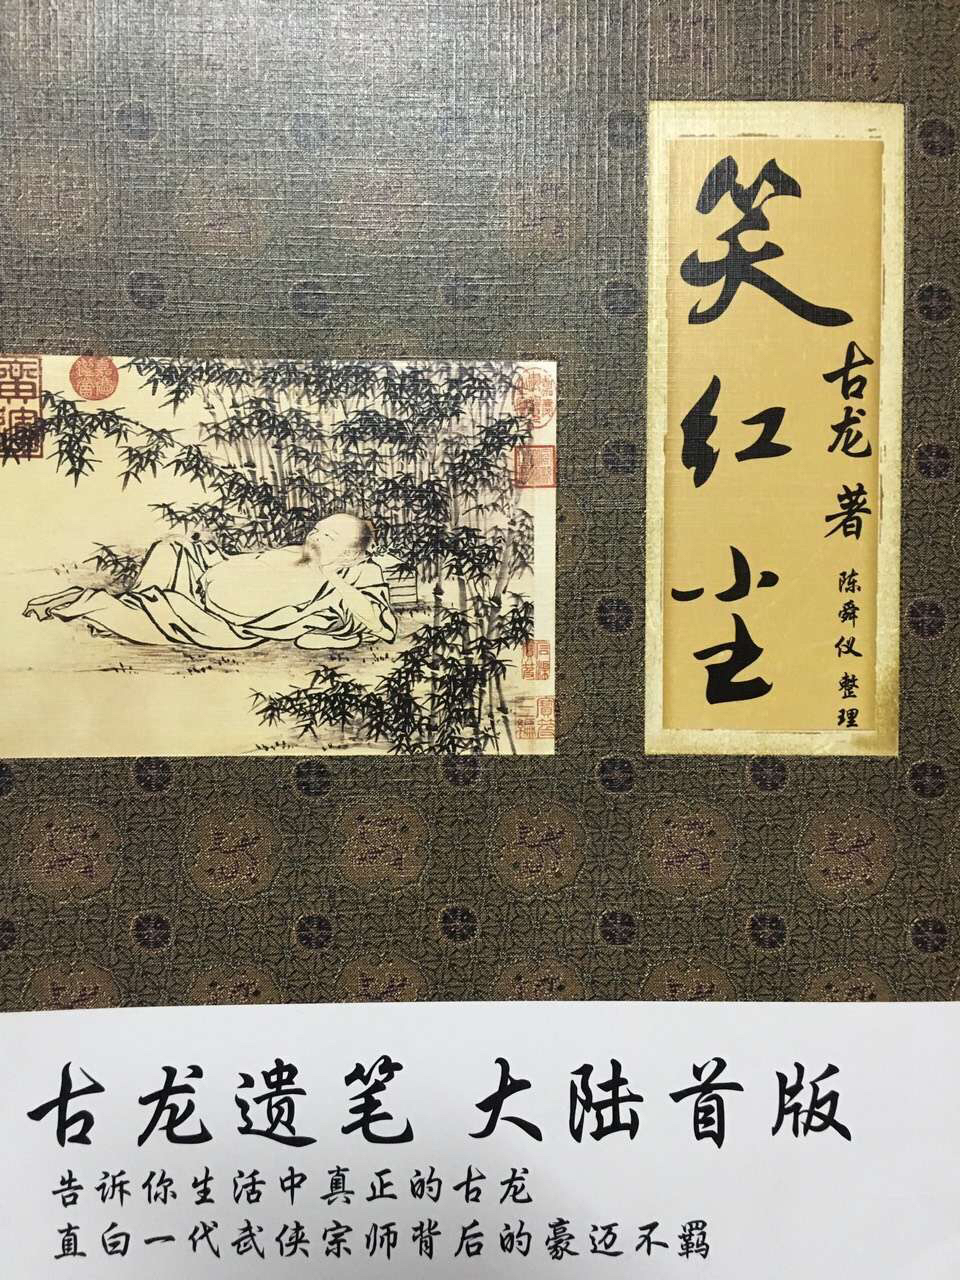 笑红尘
古龙 著
陈舜仪 整理
古龙遗笔 大陆首版
告诉你生活中真正的古龙
直白一代武侠宗师背后的豪迈不羁